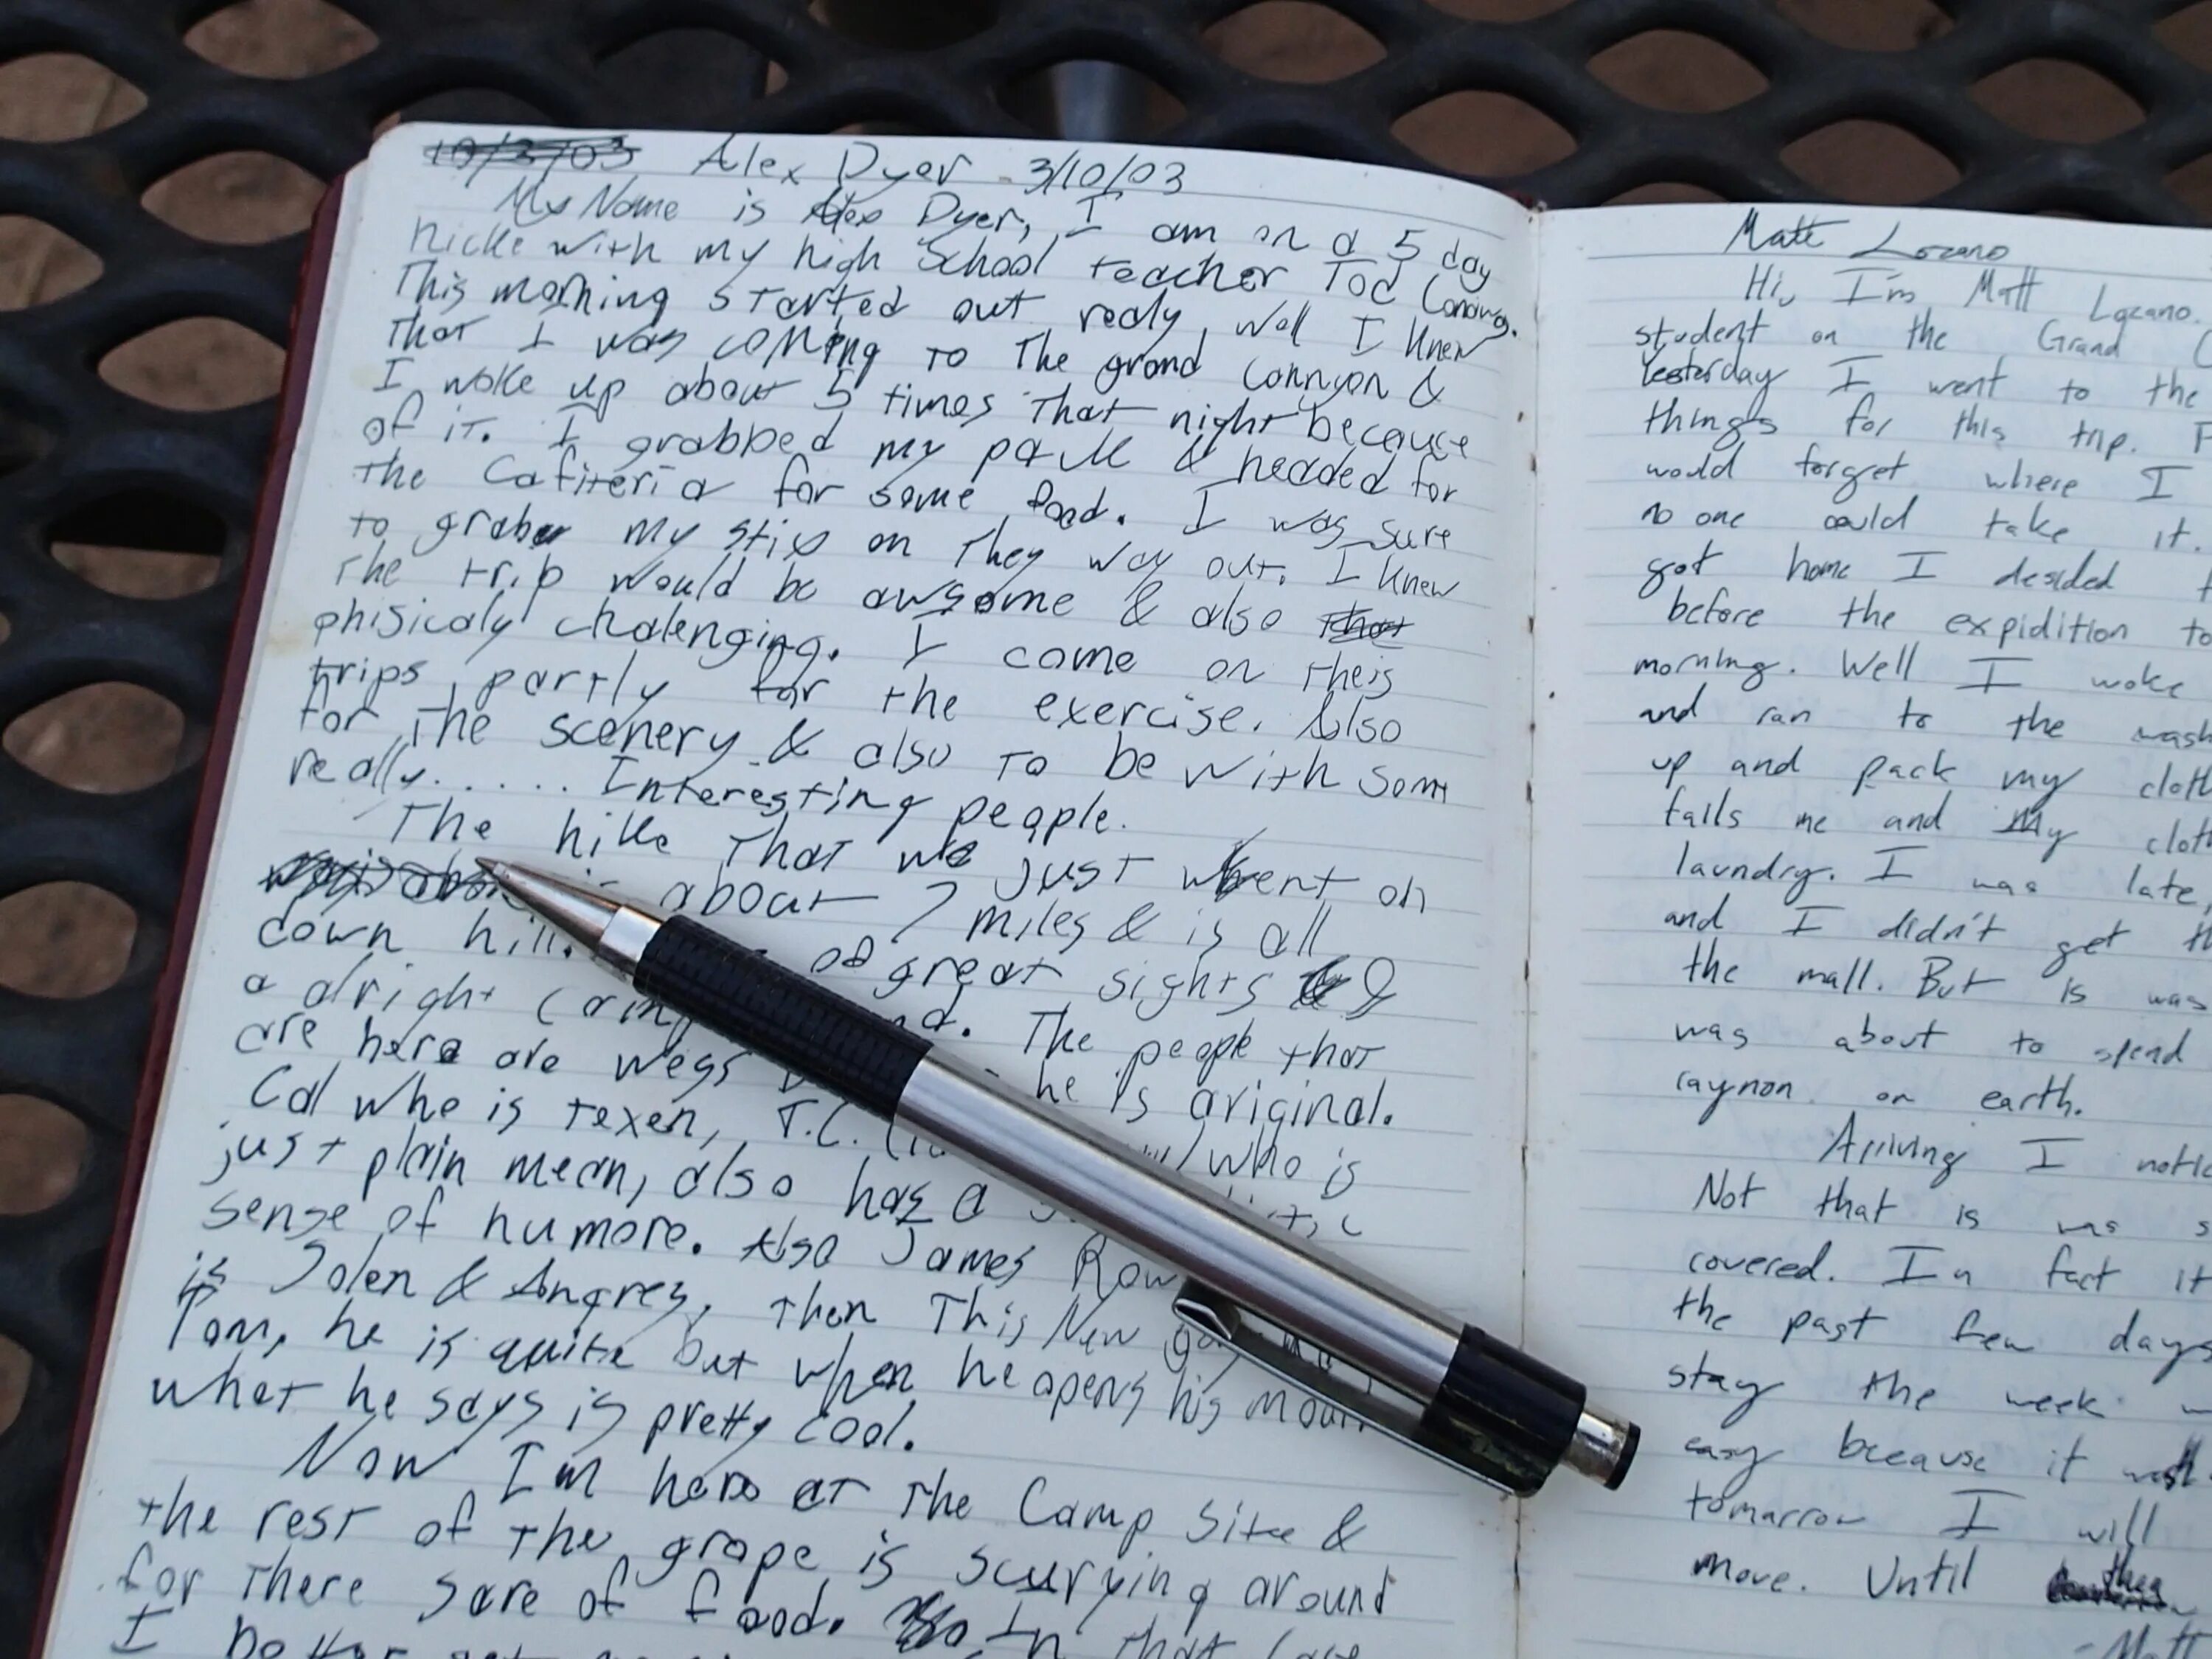 10/3/03 Alex Dyer 3/10/03
My Name is Alex Dyer, I am on a 5 day
hicke with my high School teacher Tod
This morning started out realy well I knew
that I was coming to The grand Cannyon &
I woke up about 5 times that night because
of it. I grabbed my pack & headed for
the Cafiteria for some food. I was sure
to grab my stix on they way out. I knew
the trip would be awsome & also that
phisicaly chalenging. I come on theis
trips partly for the exercise. Also
for the scenery & also to be with som
really...... Interesting people.
The hike that we just went on
about 7 miles & is all
down hill. of great sights &
a alright The people that
are here are he is original.
Cal who is texen, T.C. who is
just plain mean, also has a
sense of humore. Also James
is Jolen & Angrey, then This New guy
Tom, he is quite but when he opens his
what he says is pretty cool.
Now I'm here at the Camp site &
the rest of the grope is scurrying around
for there sare of food. In that
I
Matt Lozano
Hi, I'm Matt Lozano.
student on the Grand
Yesterday I went to the
things for this trip.
would forget where I
no one could take it.
got home I desided
before the expidition to
morning. Well I woke
and ran to the wash
up and pack my cloth
falls me and my cloth
laundry. I was late,
and I didn't get th
the mall. But is was
was about to spend
caynon on earth.
Arriving I notic
Not that is was s
covered. In fact it
the past few days
stay the week w
easy because it
tomarrow I will
move. Until then
-Matt